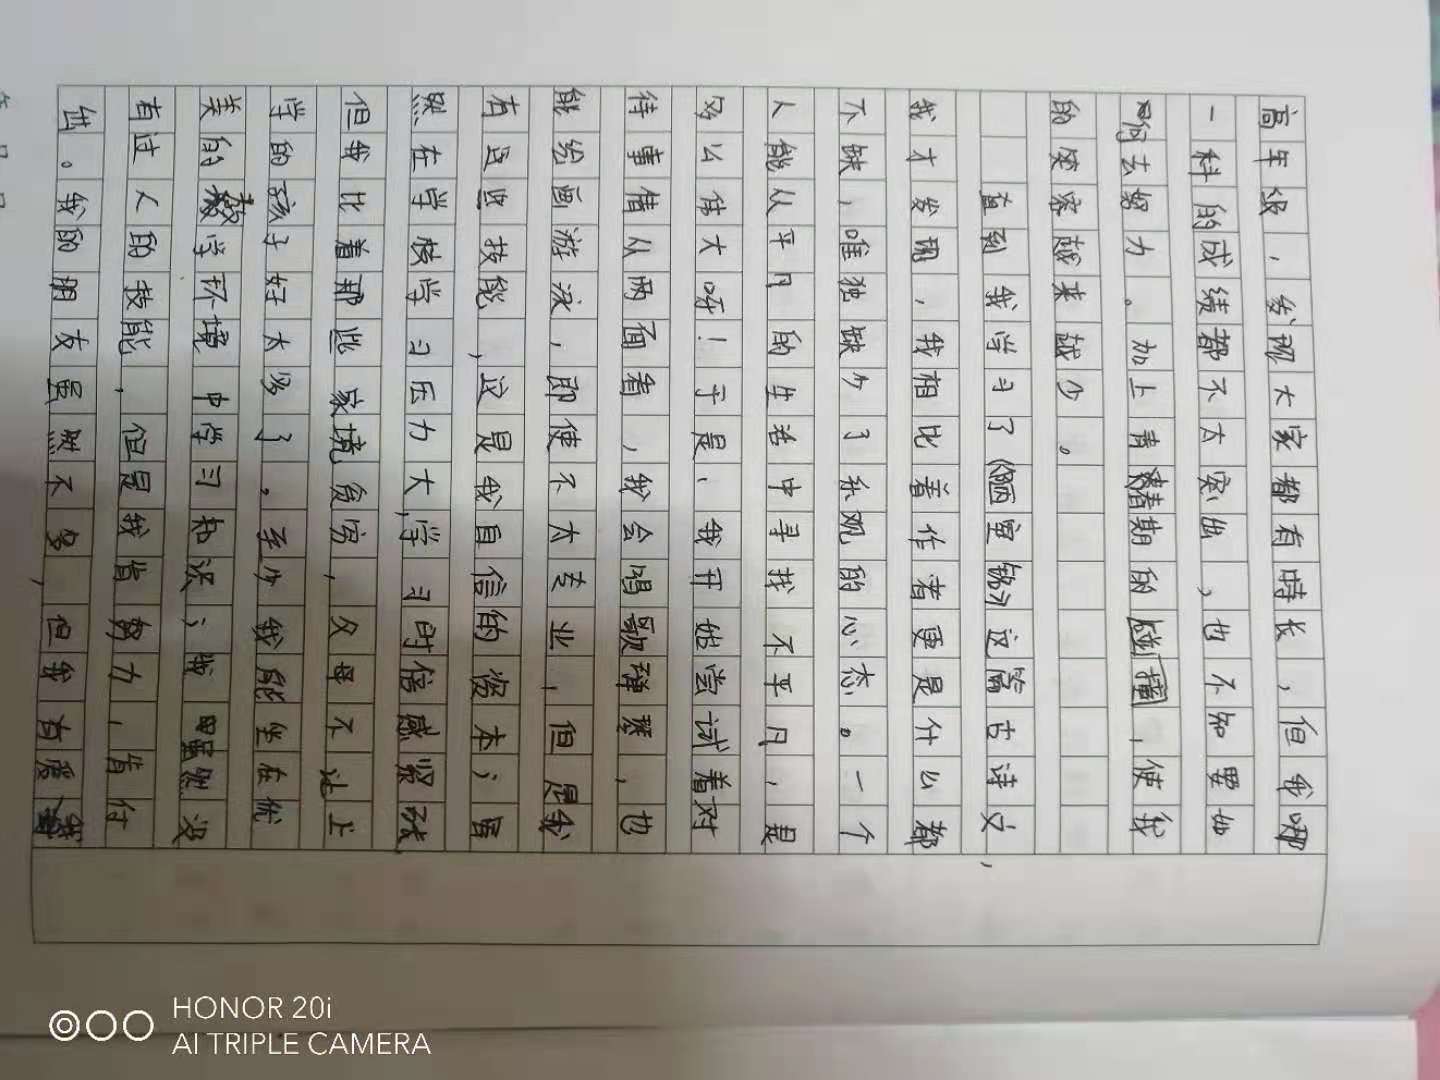 高年级，发现大家都有特长，但我哪
一科的成绩都不太突出，也不知要如
何去努力。加上青春期的碰撞，使我
的笑容越来越少。
直到我学习了《陋室铭》这篇古诗文，
我才发现，我相比着作者更是什么都
不缺，唯独缺少了乐观的心态。一个
人能从平凡的生活中寻找不平凡，是
多么伟大呀！于是、我开始尝试着对
待事情从两面看，我会唱歌弹琴，也
能绘画游泳，即使不太专业，但是我
有这些技能，这是我自信的资本；虽
然在学校学习压力大，学习时倍感紧张，
但我比着那些家境贫穷，父母不让上
学的孩子好太多了。至少我能坐在优
美的教学环境中学习知识；我虽然没
有过人的技能，但是我肯努力，肯付
出。我的朋友虽然不多，但我有爱我
HONOR 20i
AI TRIPLE CAMERA